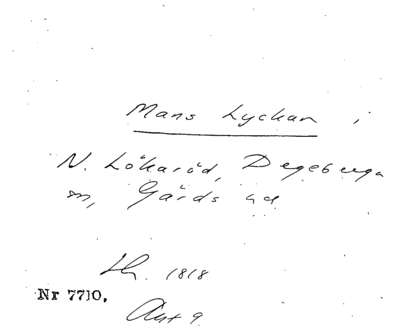 Mans Lyckan i
N. Lökaröd, Degeberga
sn, Gärds hd
Lh. 1818
Nr 7710.
Akt 9.